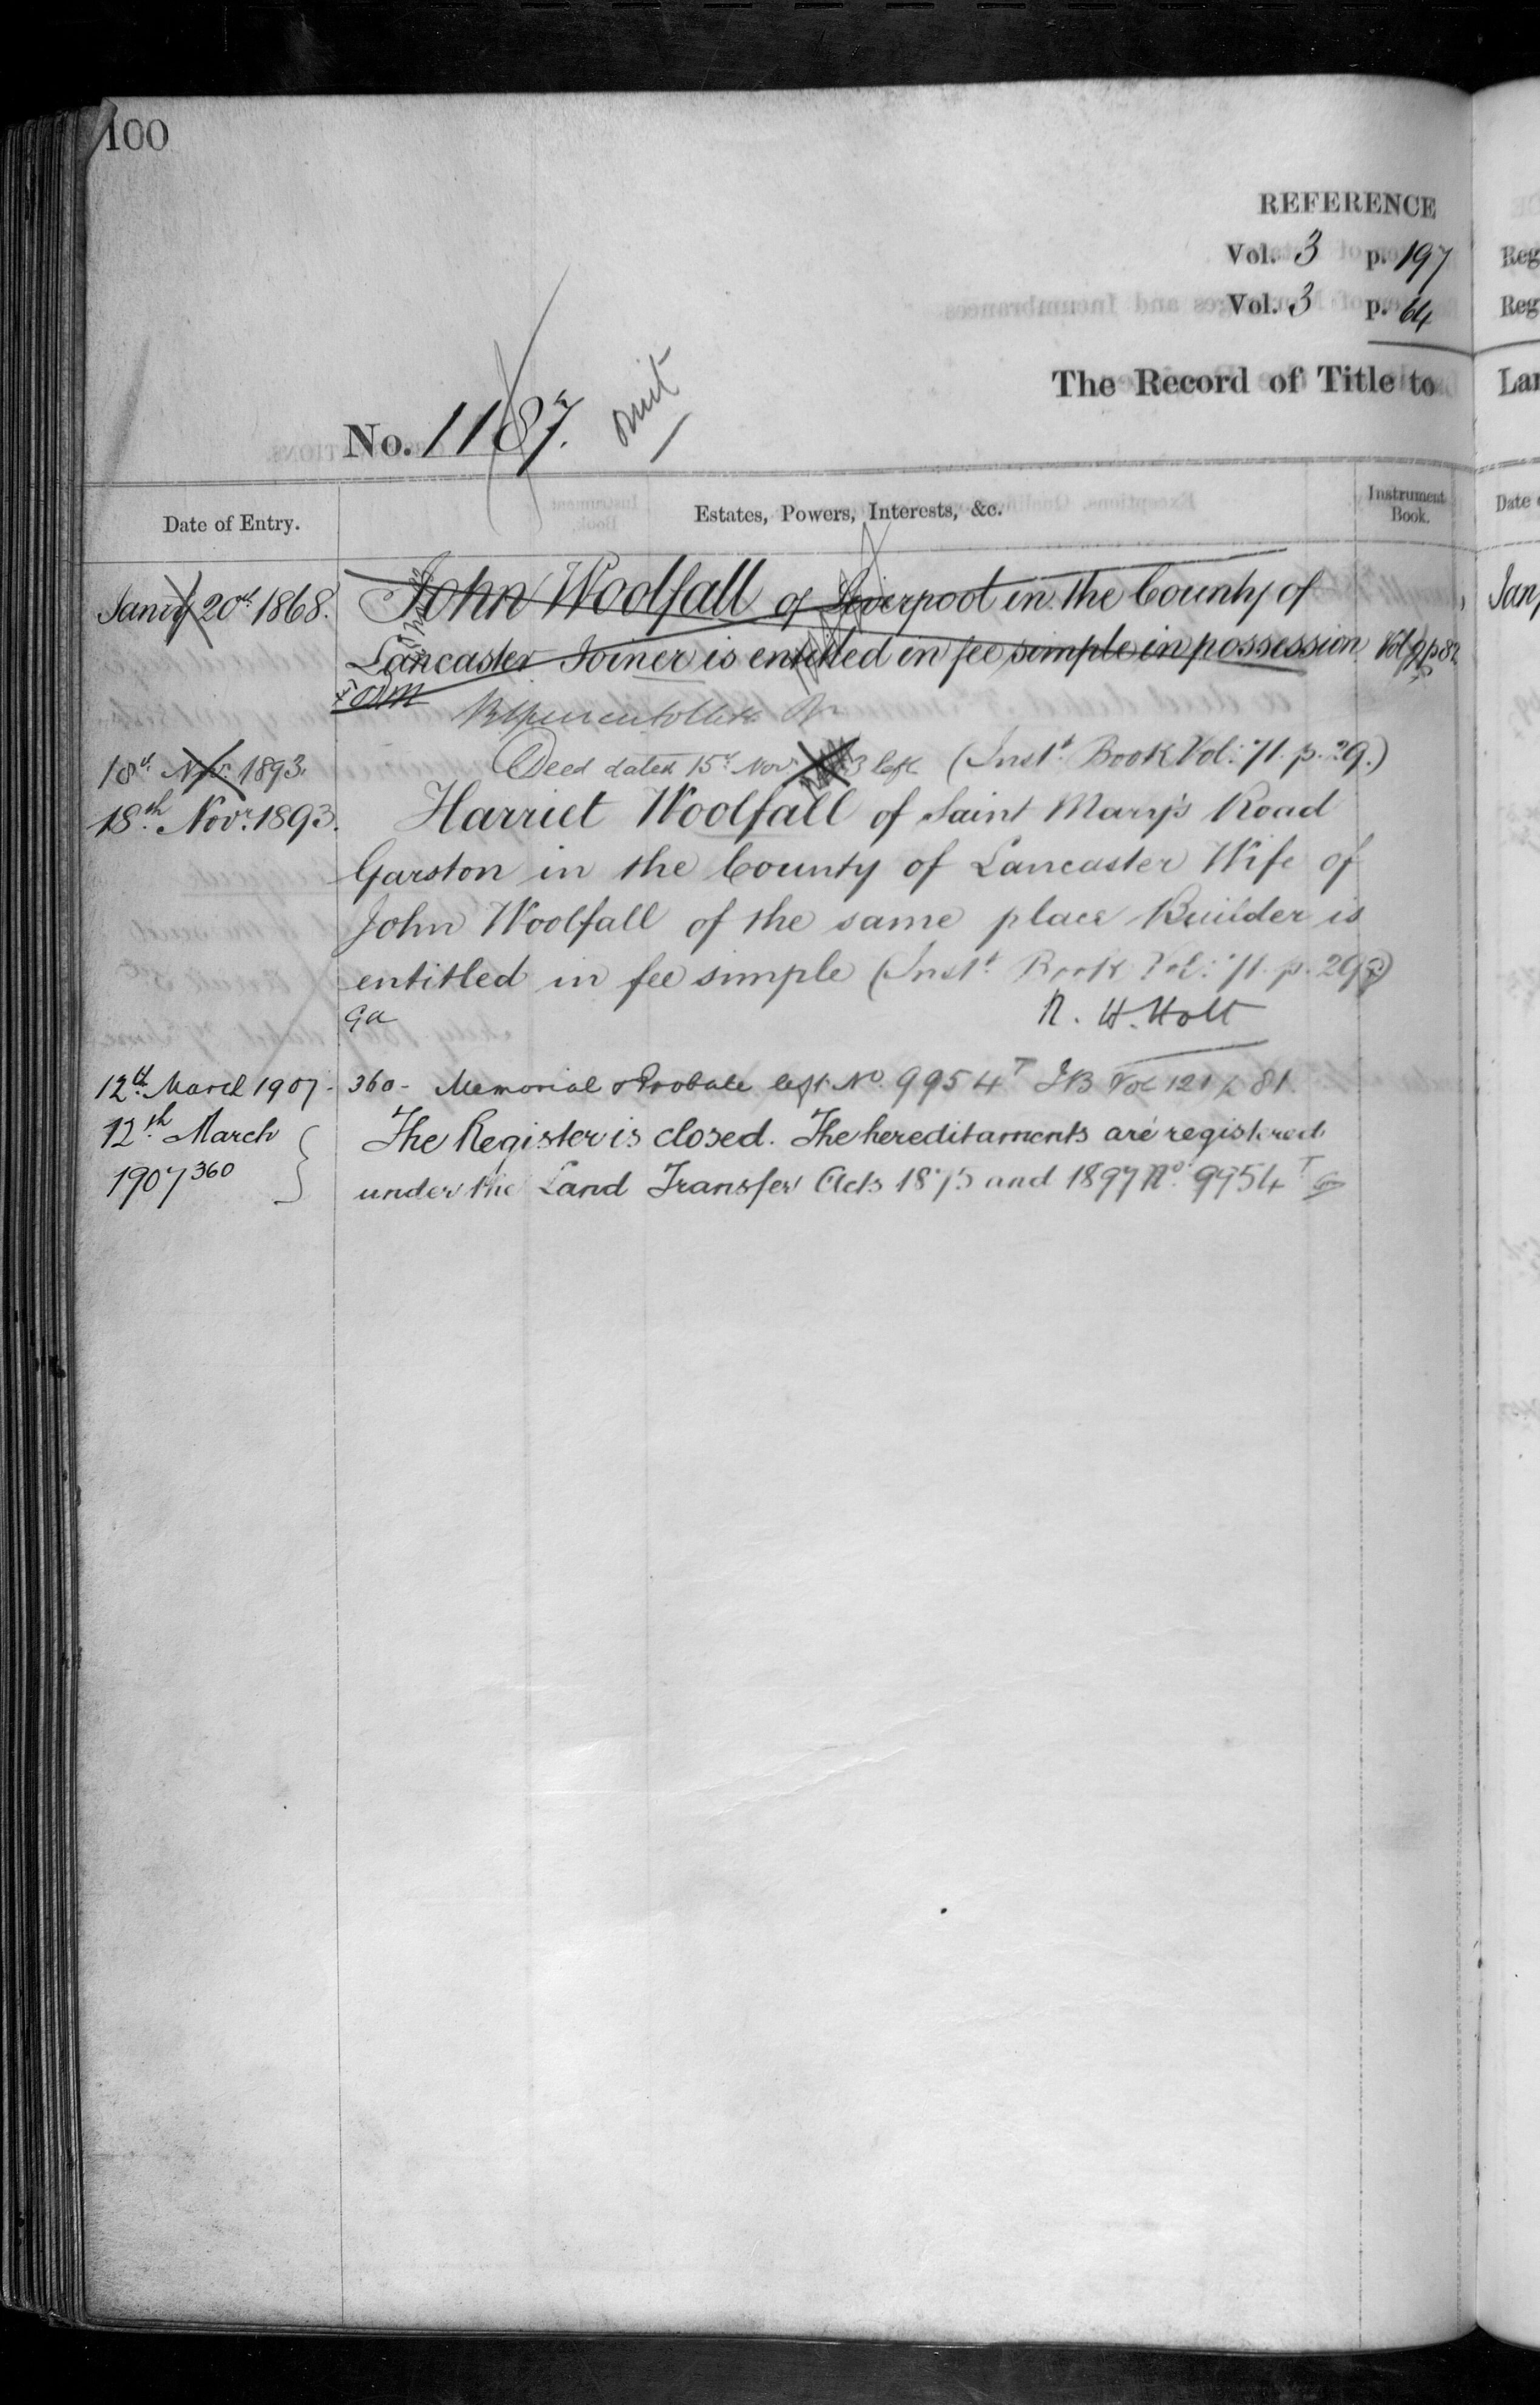 100
REFERENCE
Vol. 3 p. 197
Vol. 3 p. 64
The Record of Title to
No. 1187.
omit
Date of Entry.
Estates, Powers, Interests, &c.
Instrument Book.
Jany 20th 1868.
John Woolfall of Liverpool in the County of
Lancaster Joiner is entitled in fee simple in possession
18th Nov. 1893.
Deed dated 15th Nov. left (Inst. Book Vol. 71. p. 29.)
18th Novr. 1893.
Harriet Woolfall of Saint Mary's Road
Garston in the County of Lancaster Wife of
John Woolfall of the same place Builder is
entitled in fee simple (Inst. Book Vol. 71. p. 29)
R. H. Holt
12th March 1907.
360 - Memorial & Probate left No. 9954T IB Vol 121 p 81
12th March
1907 360
The Register is closed. The hereditaments are registered
under the Land Transfer Acts 1875 and 1897 No. 9954T
Reg
Reg
Lan
Date
Jany